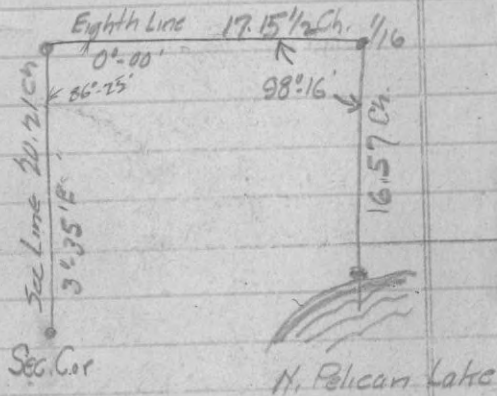 Eighth Line 17.15 1/2 Ch. 1/16
0°-00'
86°-25'
98°-16'
Sec Line 20.21 Ch
3°-35' E.
16.57 Ch.
Sec. Cor
N. Pelican Lake